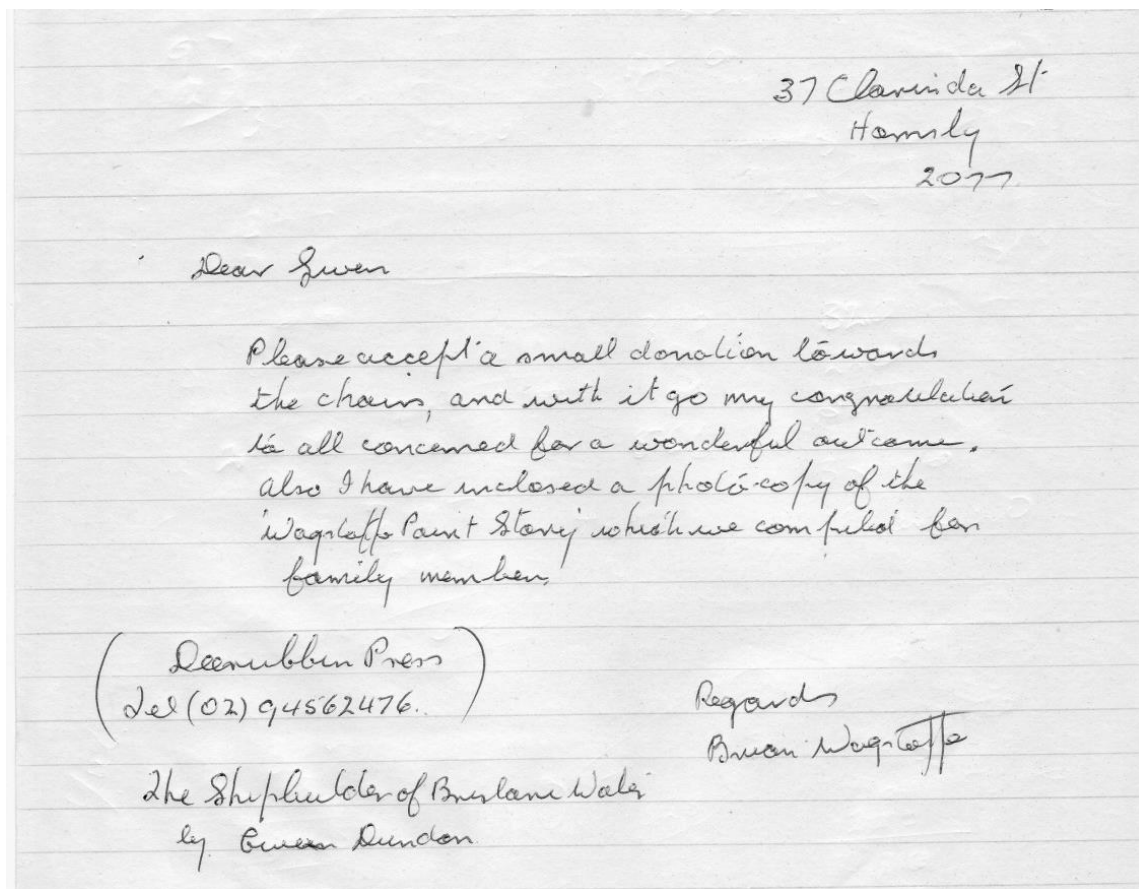 37 Clarinda St
Hornsby
2077
Dear Gwen
Please accept a small donation towards
the chairs, and with it go my congratulation
to all concerned for a wonderful outcome.
Also I have inclosed a photo-copy of the
'Wagstaffe Point Story' which we compiled for
family member.
(Deerubbin Press
Tel (02) 94562476..)
Regards
Brian Wagstaffe
The Shipbuilder of Brisbane Water
by Gwen Dundon.